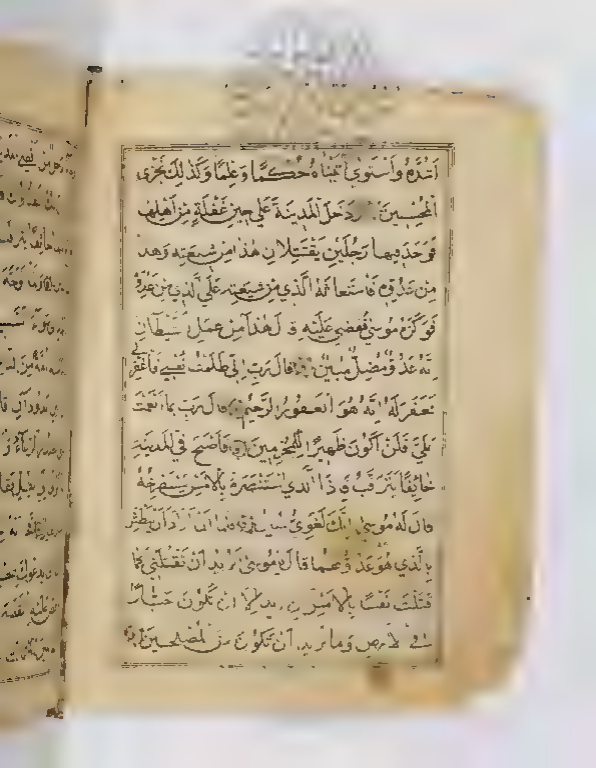 اَشُدَّهُ وَاسْتَوٰى اٰتَيْنَاهُ حُكْمًا وَعِلْمًا وَكَذٰلِكَ نَجْزِى
الْمُحْسِنِينَ وَدَخَلَ الْمَدِينَةَ عَلٰى حِينِ غَفْلَةٍ مِنْ اَهْلِهَا
فَوَجَدَ فِيهَا رَجُلَيْنِ يَقْتَتِلَانِ هٰذَا مِنْ شِيعَتِهِ وَهٰذَا
مِنْ عَدُوِّهِ فَاسْتَغَاثَهُ الَّذِي مِنْ شِيعَتِهِ عَلَى الَّذِي مِنْ عَدُوِّهِ
فَوَكَزَهُ مُوسٰى فَقَضٰى عَلَيْهِ قَالَ هٰذَا مِنْ عَمَلِ الشَّيْطَانِ
اِنَّهُ عَدُوٌّ مُضِلٌّ مُبِينٌ قَالَ رَبِّ اِنِّى ظَلَمْتُ نَفْسِى فَاغْفِرْ لِى
فَغَفَرَ لَهُ اِنَّهُ هُوَ الْغَفُورُ الرَّحِيمُ قَالَ رَبِّ بِمَا اَنْعَمْتَ
عَلَىَّ فَلَنْ اَكُونَ ظَهِيرًا لِلْمُجْرِمِينَ فَاَصْبَحَ فِى الْمَدِينَةِ
خَائِفًا يَتَرَقَّبُ فَاِذَا الَّذِى اسْتَنْصَرَهُ بِالْاَمْسِ يَسْتَصْرِخُهُ
قَالَ لَهُ مُوسٰى اِنَّكَ لَغَوِىٌّ مُبِينٌ فَلَمَّا اَنْ اَرَادَ اَنْ يَبْطِشَ
بِالَّذِي هُوَ عَدُوٌّ لَهُمَا قَالَ يَا مُوسٰى اَتُرِيدُ اَنْ تَقْتُلَنِى كَمَا
قَتَلْتَ نَفْسًا بِالْاَمْسِ اِنْ تُرِيدُ اِلَّا اَنْ تَكُونَ جَبَّارًا
فِى الْاَرْضِ وَمَا تُرِيدُ اَنْ تَكُونَ مِنَ الْمُصْلِحِينَ